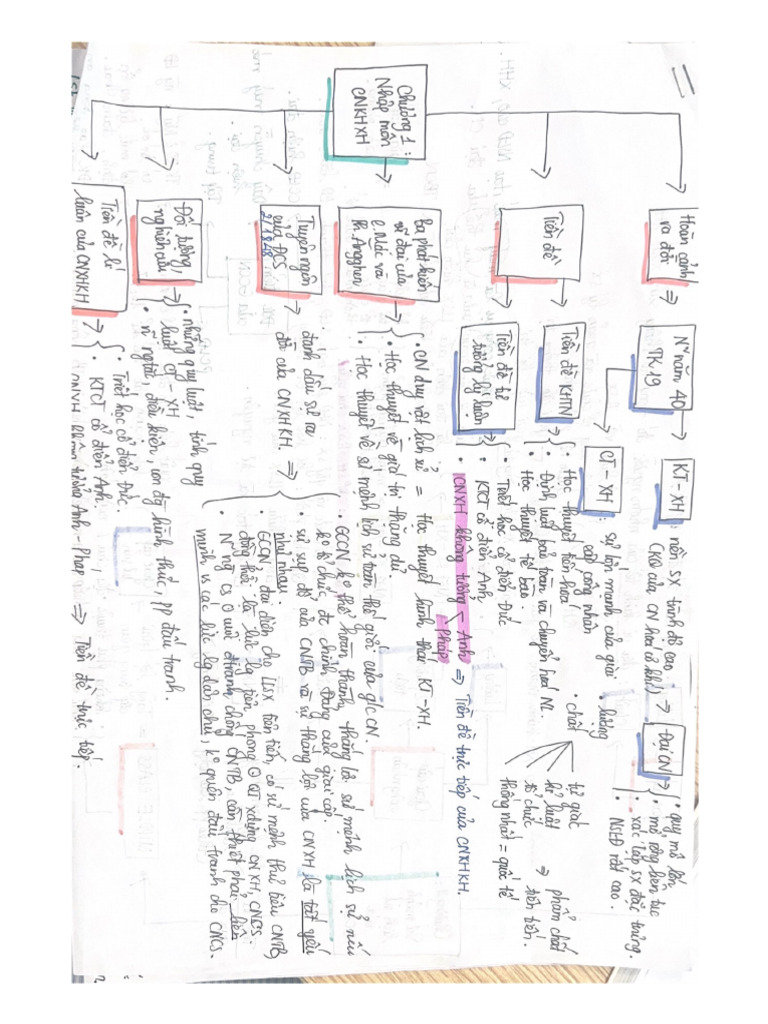 Chương 1:
Nhập môn
CNKHXH
Hoàn cảnh
ra đời
⇒
N~ năm 40
TK.19
KT-XH
: nền SX trình độ cao
CKQ của CN hoá cơ khí)
⇒ Đại CN
• quy mô lớn
• mở rộng liên tục
• xác lập SX đặc trưng.
• NSLĐ rất cao.
CT-XH
: sự lớn mạnh của giai
cấp công nhân
• lượng
• chất
tự giác
kỉ luật
tổ chức
thống nhất = quốc tế
⇒ phẩm chất
tiên tiến.
Tiền đề
Tiền đề KHTN
• Học thuyết tiến hoá
• Định luật bảo toàn và chuyển hoá NL.
• Học thuyết tế bào.
Tiền đề tư
tưởng lý luận
• Triết học cổ điển Đức
• KTCT cổ điển Anh.
• CNXH không tưởng - Anh
Pháp
⇒ Tiền đề trực tiếp của CNXHKH.
Ba phát kiến
vĩ đại của
C. Mác và
Ph. Angghen
• CN duy vật lịch sử = Học thuyết hình thái KT-XH.
• Học thuyết về giá trị thặng dư.
• Học thuyết về sứ mệnh lịch sử toàn thế giới của g/c CN.
Tuyên ngôn
của ĐCS
2/1848
đánh dấu sự ra
đời của CNXHKH. ⇒
• GCCN k° thể hoàn thành thắng lợi sứ mệnh lịch sử nếu
k° tổ chức đc chính đảng của giai cấp.
• sự sụp đổ của CNTB và sự thắng lợi của CNXH là tất yếu
như nhau.
• GCCN, đại diện cho LLSX tiên tiến, có sứ mệnh thủ tiêu CNTB,
đồng thời là lực lg tiên phong
xdựng CNXH, CNCS.
• N~ng CS
đtranh chống CNTB, cần thiết phải liên
minh vs các lực lg dân chủ, k° quên đấu tranh cho CNCS.
Đối tượng
nghiên cứu
• những quy luật, tính quy
luật CT-XH
• n~ nguyên tắc, điều kiện, con đg hình thức, pp đấu tranh.
Tiền đề lí
luận của CNXHKH
• Triết học cổ điển Đức.
• KTCT cổ điển Anh
• CNXH không tưởng Anh - Pháp ⇒ Tiền đề trực tiếp.